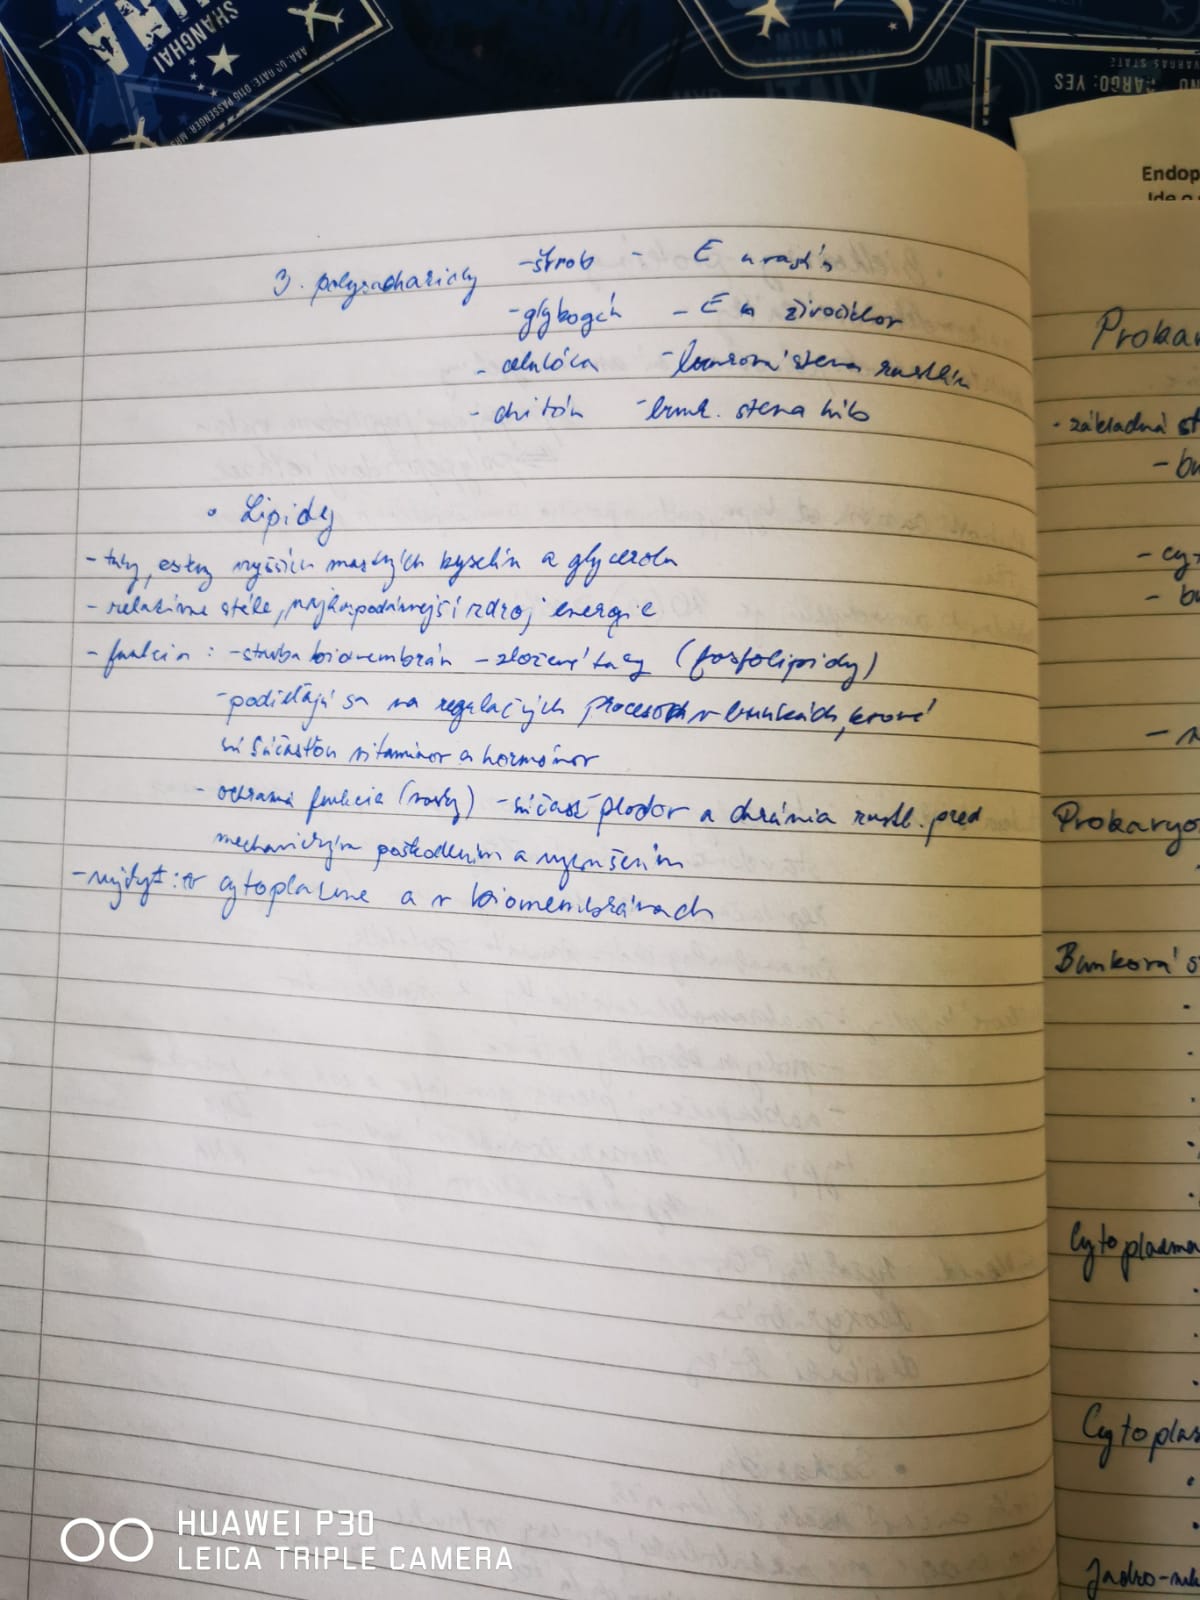 SHANGHAI
MILAN
ITALY
MLN
CARGO: YES
Endop
3. polysacharidy - škrob - E u rastlín
- glykogén - E u živočíchov
- celulóza - bunková stena rastlín
- chitín - bunk. stena húb
• Lipidy
- tuky, estery vyšších mastných kyselín a glycerolu
- relatívne stále, najhospodárnejší zdroj energie
- funkcia: - stavba biomembrán - zložené tuky (fosfolipidy)
- podieľajú sa na regulačných procesoch v bunkách, ktoré
sú súčasťou vitamínov a hormónov
- ochranná funkcia (vosky) - súčasť plodov a chránia rastl. pred
mechanickým poškodením a vysušením
- výskyt: v cytoplazme a v biomembránach
Prokar
- základná št
- bu
- cy
- bu
Prokaryo
Bunková s
Cytoplazma
Cytoplaz
Jadro
HUAWEI P30
LEICA TRIPLE CAMERA